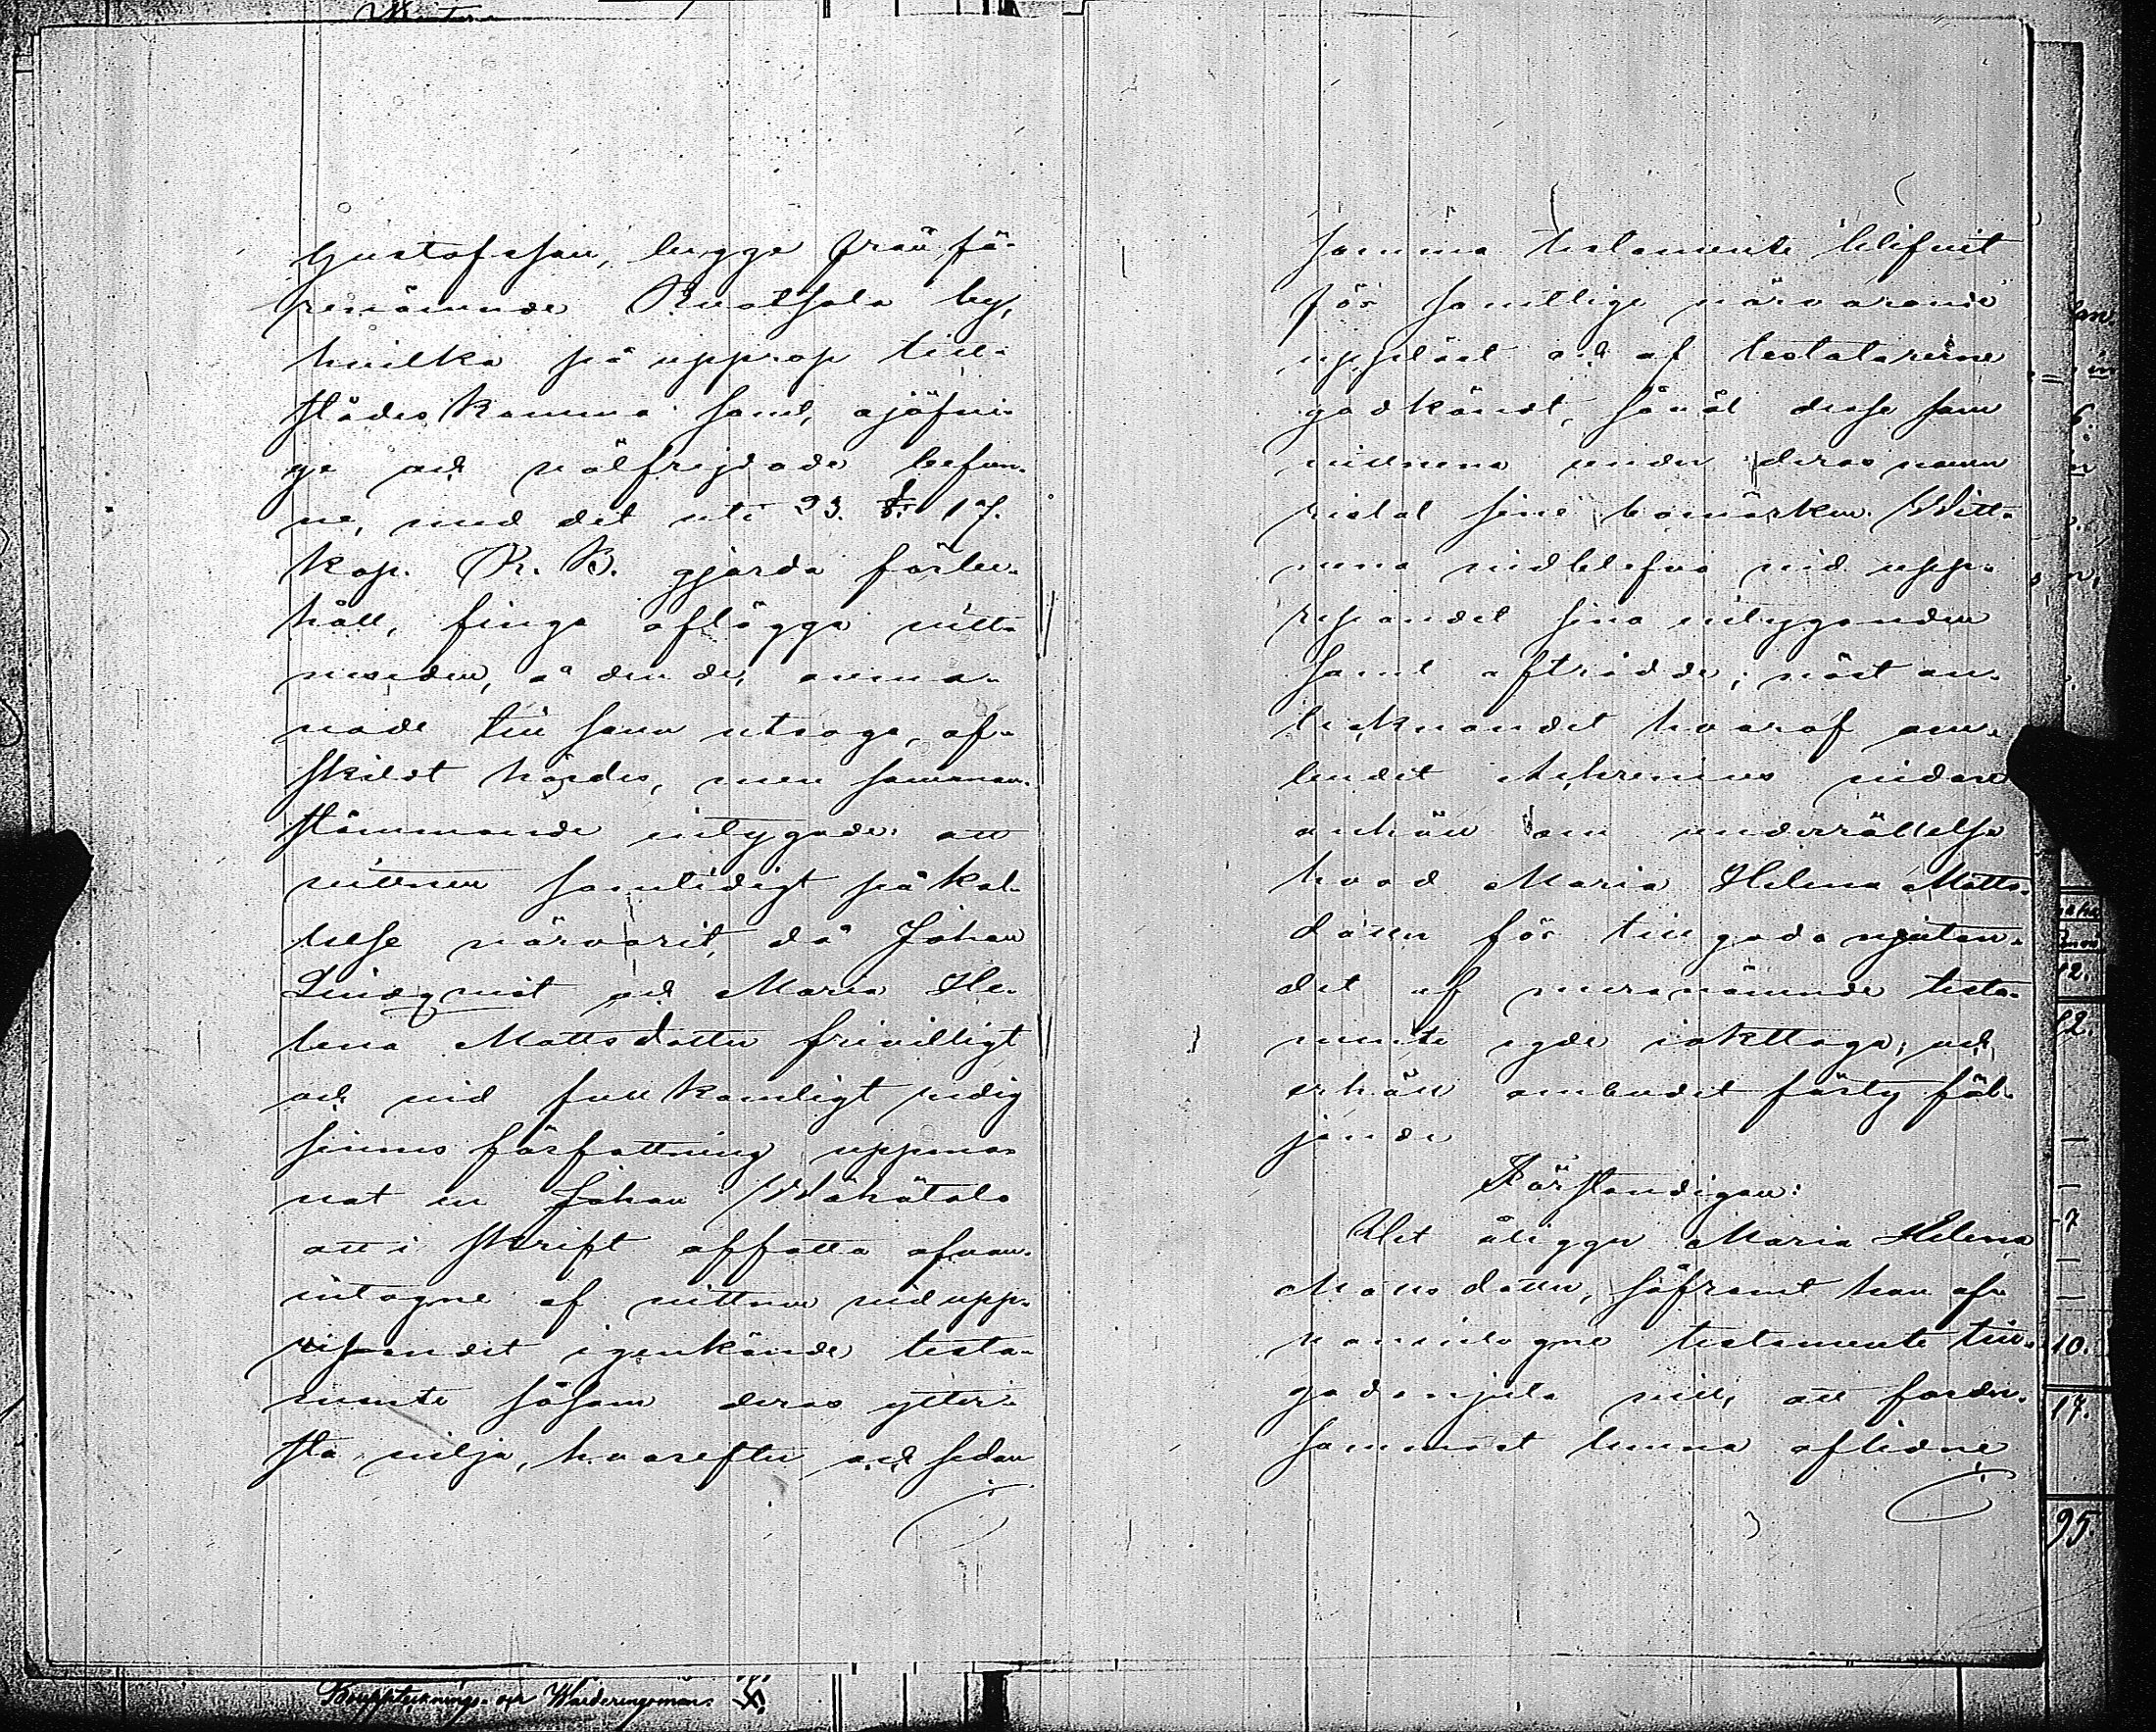 Gustafsson, begge från fö-
renämnde Ruotsala by,
hvilka på upprop till-
städeskommo samt, ojäfvi-
ge och välfrejdade befun-
ne, med det uti 23. §. 17.
kap. R. B. gjorda förbe-
håll, finge aflägga vitt-
neseden, å den de, anma-
nade till sann utsago, af-
skildt hördes, men samman-
stämmande intygade: att
vittnen samtidigt på kal-
lelse närvarit, då Johan
Lindqvist och Maria He-
lena Mattsdotter frivilligt
och vid fullkomligt redig
sinnes författning uppma-
nat en Johan Wähätalo
att i skrift affatta ofvan-
intagne af vittnen vid upp-
visandet igenkände testa-
mente såsom deras ytter-
sta vilja, hvarefter och sedan
samma testamente blifvit
för samtlige närvarande
uppläst och af testatorerne
godkändt, såväl desse som
vittnena under deras namn
ristat sine bomärken. Witt-
nena vidblefvo vid upp-
repandet sina intyganden
samt afträdde; näst an-
tecknandet hvaraf om-
budet Achrenius vidare
anhöll om underrättelse
hvad Maria Helena Matts-
dotter för tillgodo njutan-
det af meranämnde testa-
mente egde iakttaga; och
erhöll ombudet förty föl-
jande
Förständigan:
Det åligger Maria Helena
Mattsdotter, såframt hon of-
vanintagne testamente till-
godonjuta vill, att forder-
sammast lemna aflidne
Bouppteckning- och Warderingsmän:
10.
17.
95.